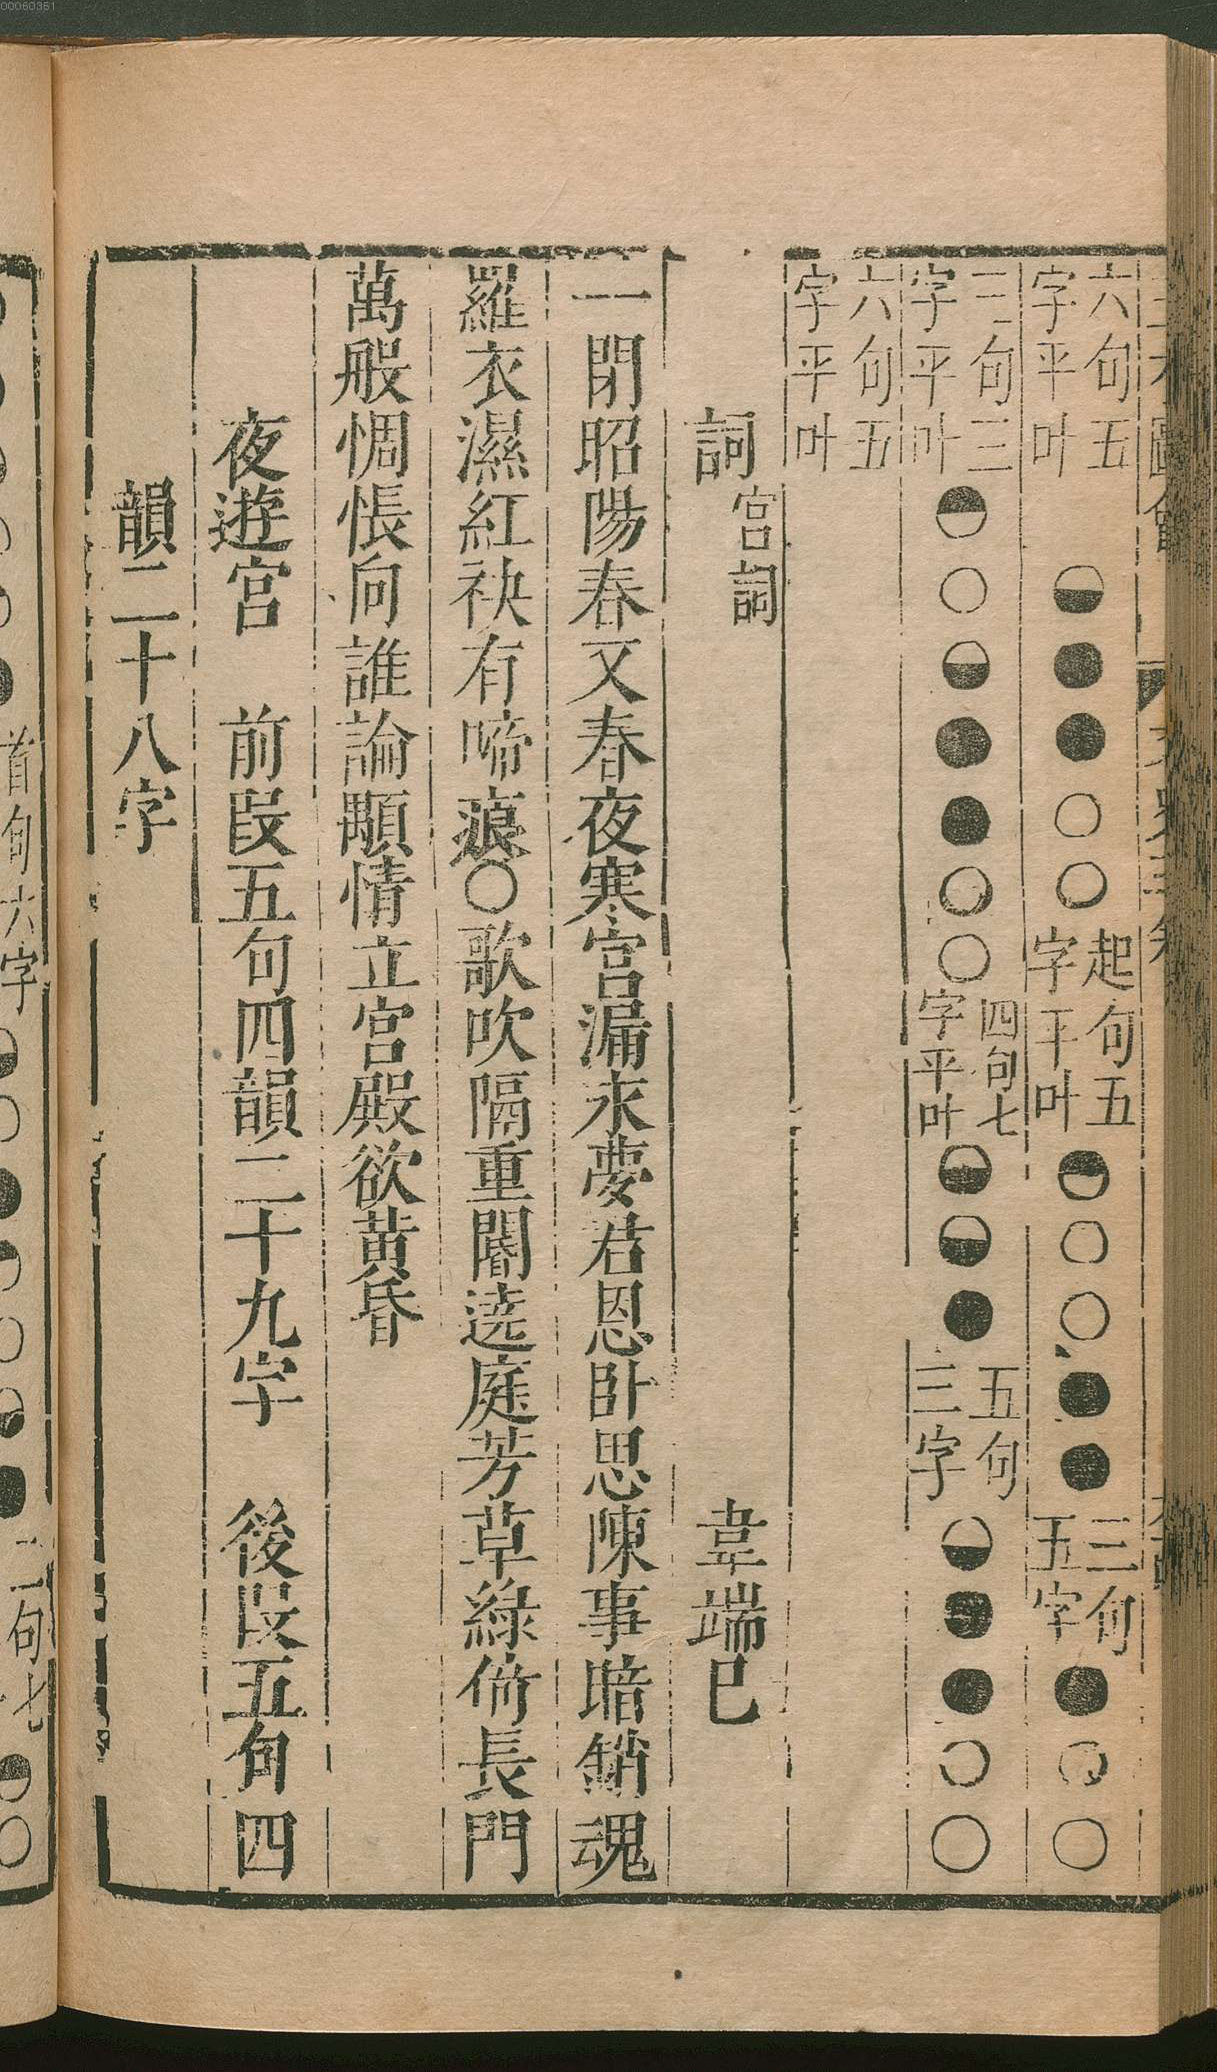 六句五字平叶◒●●○○起句五字平叶◓○○●●三句五字●○○
三句三字平叶◓○◒●●○○四句七字平叶◒◒●五句三字◒●●○○
六句五字平叶
詞 宮詞 韋端已
一閉昭陽春又春夜寒宮漏永夢君恩卧思陳事暗銷魂
羅衣濕紅袂有啼痕○歌吹隔重閽遶庭芳草綠倚長門
萬般惆悵向誰論顒情立宮殿欲黃昏
夜遊宮 前段五句四韻二十九字 後段五句四
韻二十八字
首句六字 二句七
00060351